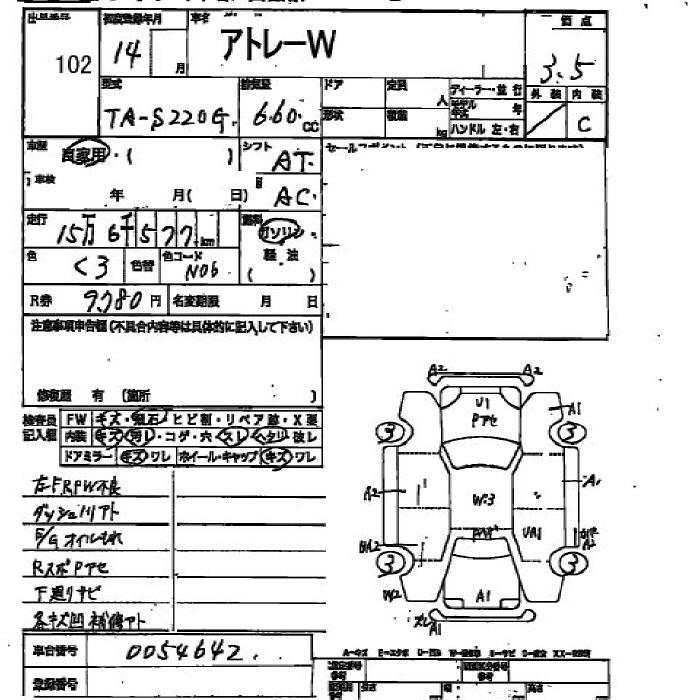 出品番号 102
初度登録年月 14 月
車名 アトレーW
評価点 3.5
外装 内装 C
型式 TA-S220G
排気量 660 CC
ドア
形状
定員 人
積載 kg
ディーラー・並行
モデル年式 年
ハンドル 左・右
車歴 自家用・( )
シフト AT
車検 年 月( 日)
AC
セールスポイント
走行 15万6千577km
燃料 ガソリン・軽油( )
色 クロ
色替
色コード N06
R券 9,780円
名変期限 月 日
注意事項申告欄(不具合内容等は具体的に記入して下さい)
修復歴 有 (箇所 )
検査員記入欄
FW キズ・飛石・ヒビ割・リペア跡・X要
内装 キズ・汚レ・コゲ・穴・スレ・ヘタリ・破レ
ドアミラー キズ・ワレ ホイール・キャップ キズ・ワレ
左FRPW不良
ダッシュ川アト
E/Gオイルもれ
RスポPアセ
下廻りサビ
各キズ凹補修アト
車台番号 0054642
登録番号
A2 A2
U1
Pアセ
A1
3 3
A2
W3
A1
UA1
A2
3 3
W2
A1
スレ
A1
A-キズ